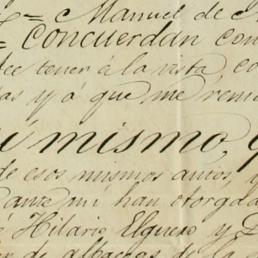 = Manuel de
= Concuerdan con
tener á la vista, co
as y á que me remi
mismo,
de esos mismos autos,
Danze mí han otorgad
é Hilario Elguero y D
de albaceas de la